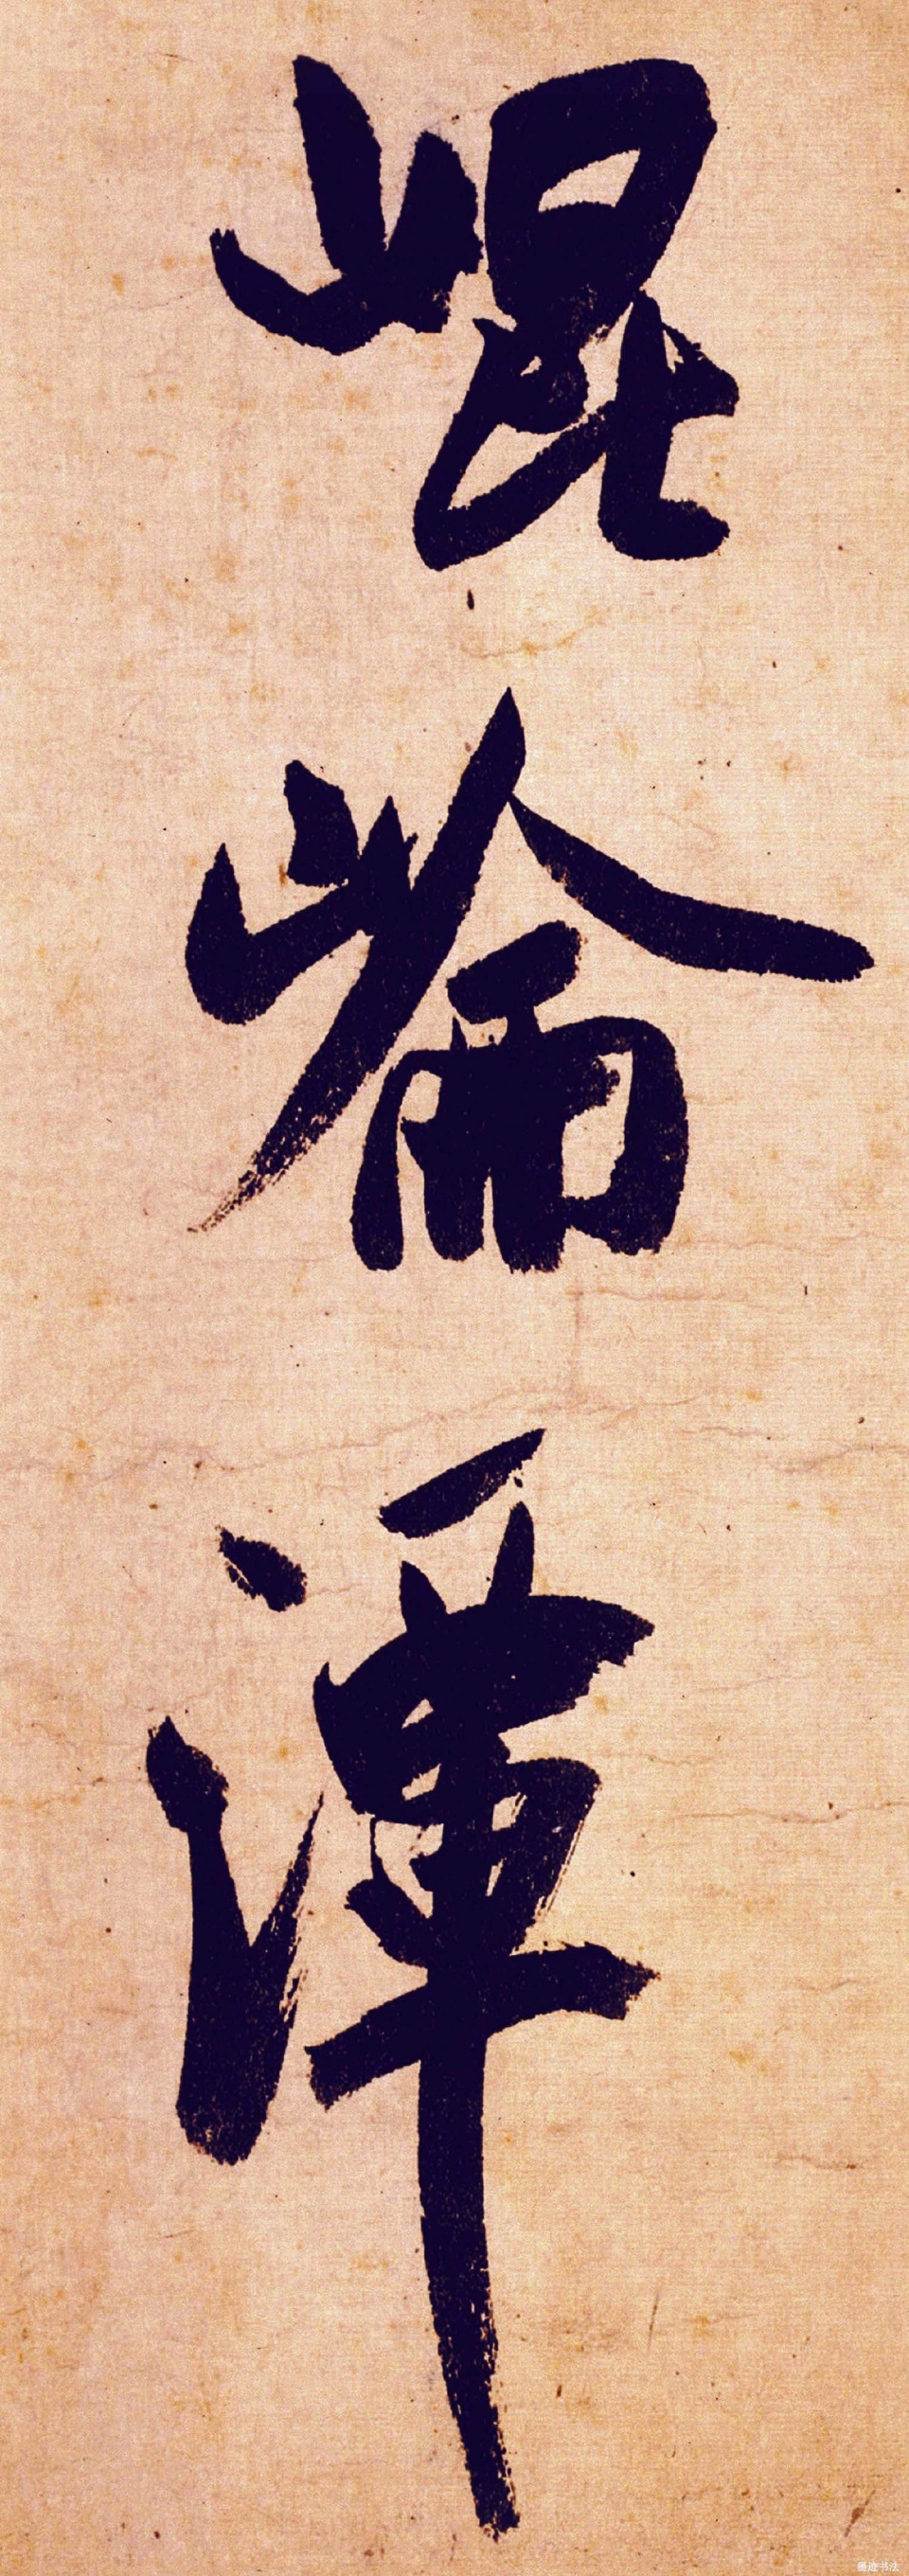 崐崘潭
墨迹书法